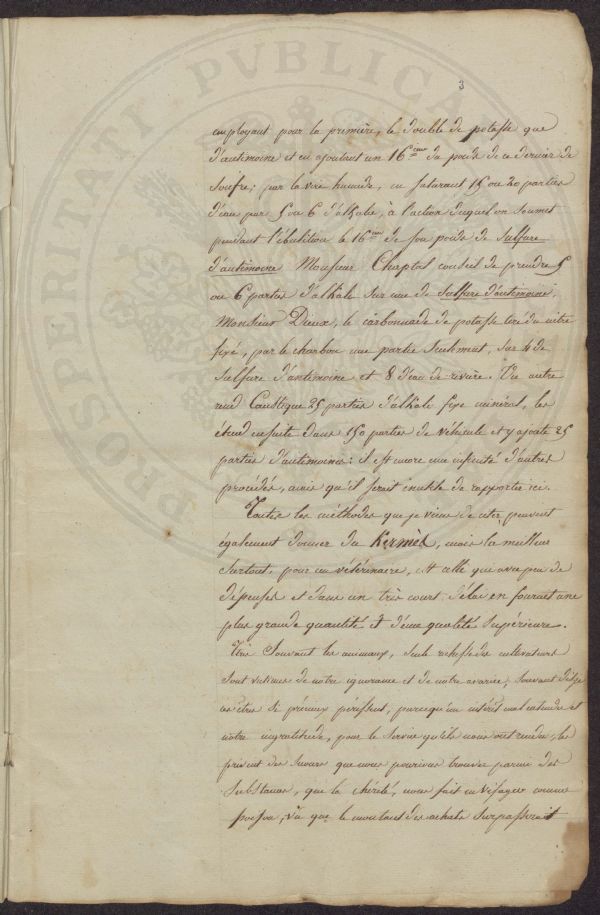 PROSPERITATI PVBLICA
3
employant pour la première, le double de potasse que
d'antimoine et en ajoutant un 16eme du poids de ce dernier de
soufre; par la voie humide, en saturant 15 ou 20 parties
d'eau par 5 ou 6 d'alkalie, à l'action duquel on soumet
pendant l'ébulition le 16eme de son poids de sulfure
d'antimoine Monsieur Chaptal conseil de prendre 5
ou 6 parties d'alkale sur une de sulfure d'antimoine,
Monsieur Dieux, le carbonnade de potasse tiré du nitre
fixé, par le charbon une partie seulement, sur 4 de
sulfure d'antimoine et 8 d'eau de rivière. Un autre
rend Caustique 25 parties d'alkale fixe minéral, les
étend ensuite dans 150 parties de véhicule et y ajoute 25
parties d'antimoine: il est encore une infinité d'autres
procédés, mais qu'il serait inutile de rapporter ici.
Toutes les méthodes que je viens de citer, peuvent
également donner du Kermès, mais la meilleur
surtout, pour un vétérinaire, est celle qui avec peu de
dépenses et dans un très court délai en fournit une
plus grande quantité et d'une qualité supérieure.
Très Souvent les animaux, seule richesse des cultivateurs
sont victimes de notre ignorance et de notre avarice; souvent
ces êtres si précieux périssent, parcequ'un intérêt mal entendu et
notre ingratitude, pour le service qu'ils nous ont rendus, les
privent des secours que nous pourions trouver parmi des
substances, que la chérété, nous fait envisager comme
poison, vu que le montant des achats surpasserait